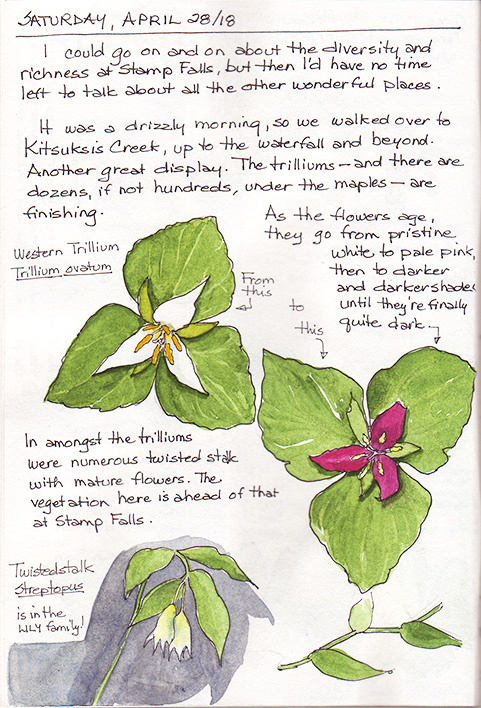 SATURDAY, APRIL 28/18
I could go on and on about the diversity and
richness at Stamp Falls, but then I'd have no time
left to talk about all the other wonderful places.
It was a drizzly morning, so we walked over to
Kitsuksis Creek, up to the waterfall and beyond.
Another great display. The trilliums — and there are
dozens, if not hundreds, under the maples — are
finishing.
As the flowers age,
they go from pristine
white to pale pink,
then to darker
and darker shades
until they're finally
quite dark.
Western Trillium
Trillium ovatum
From
this
to
this
In amongst the trilliums
were numerous twisted stalk
with mature flowers. The
vegetation here is ahead of that
at Stamp Falls.
Twistedstalk
Streptopus
is in the
LILY family!